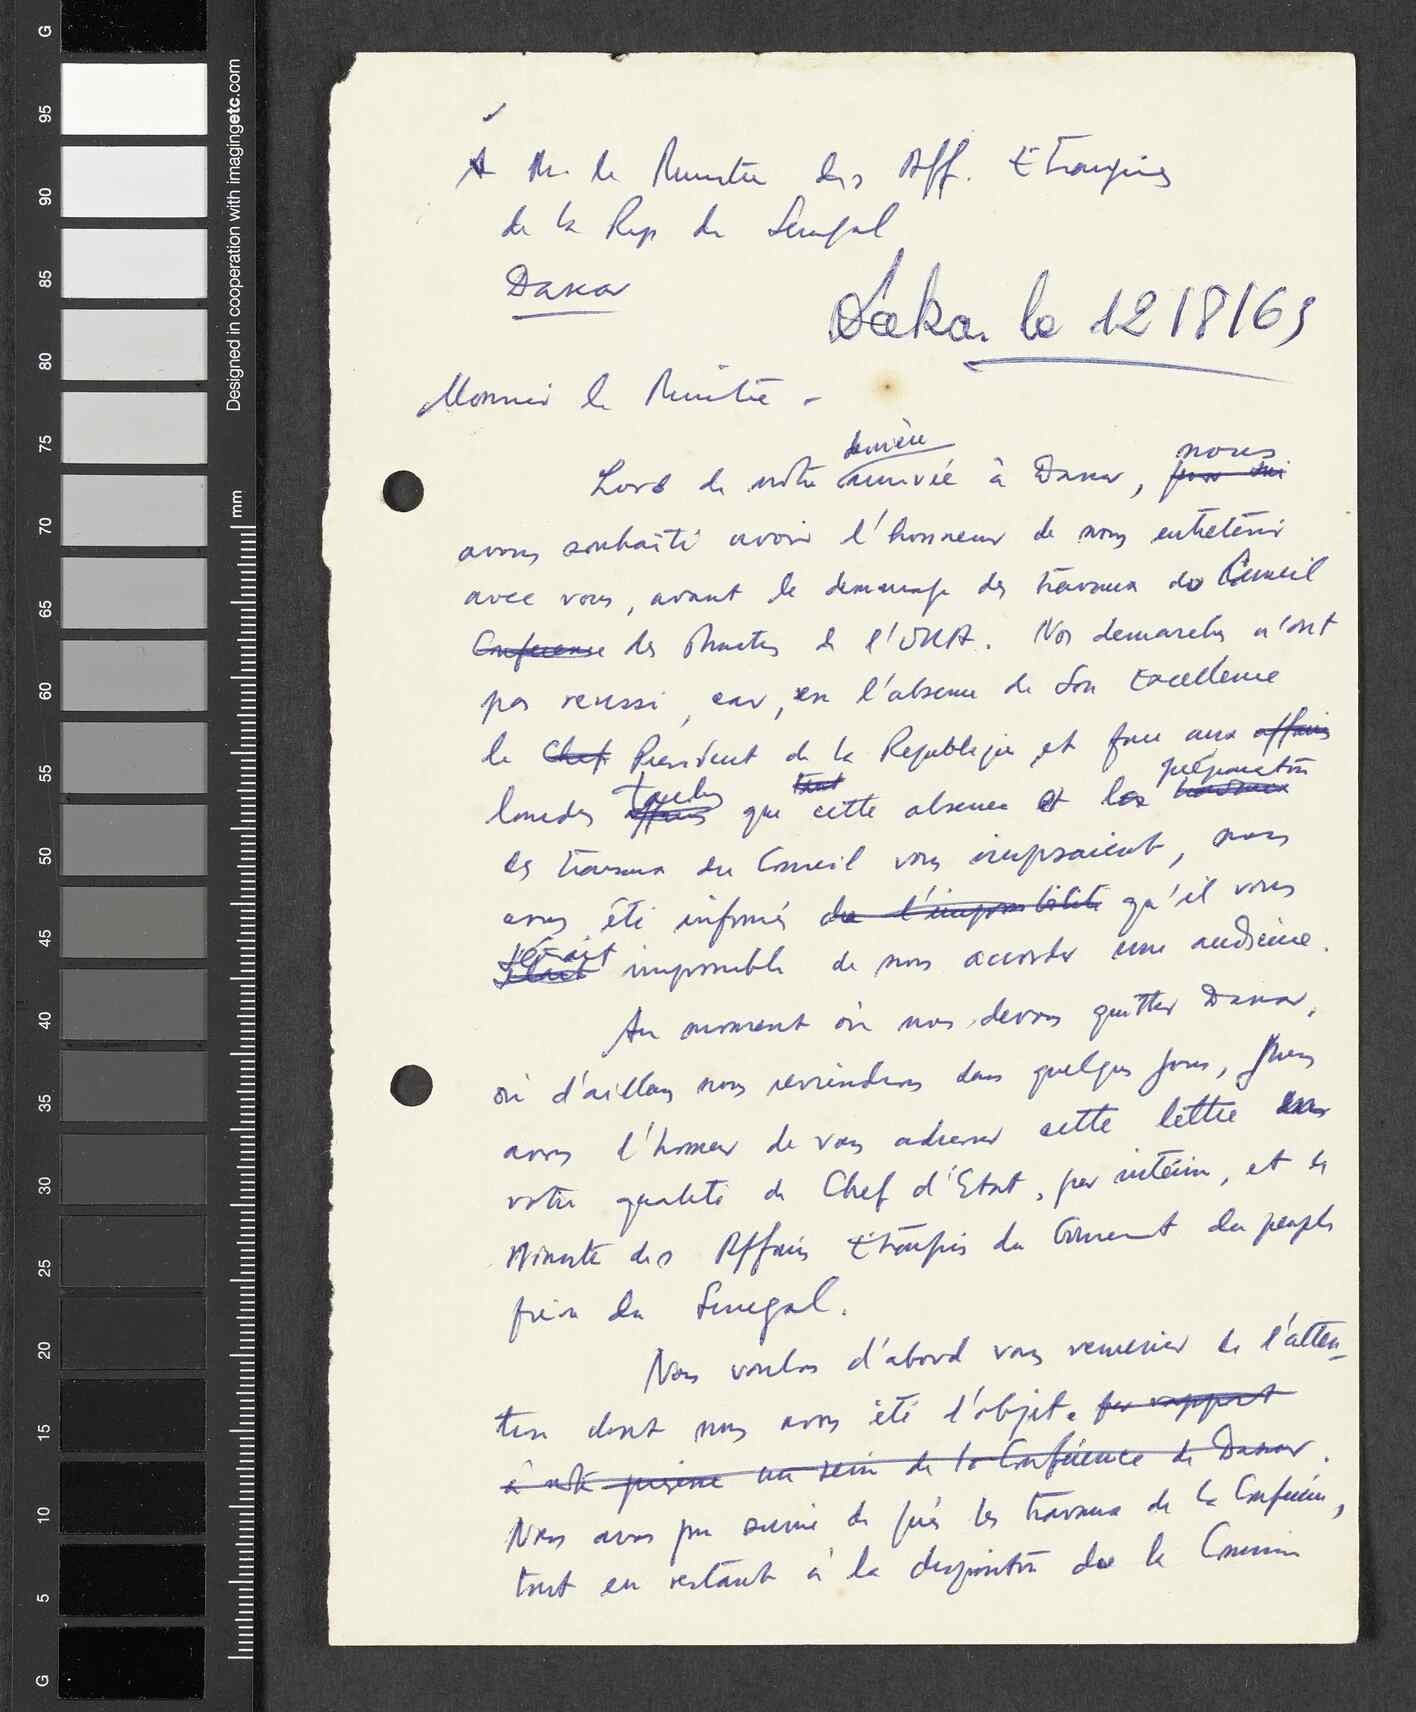 À M. le Ministre des Aff. Etrangères
de la Rep du Senegal
Dakar
Dakar le 12/8/63
Monsieur le Ministre -
dernière
Lors de notre arrivée à Dakar, nous
avons souhaité avoir l'honneur de nous entretenir
avec vous, avant le demarrage des travaux do Conseil
Conference des Ministres de l'OUA. Nos demarches n'ont
pas reussi, car, en l'absence de Son Excellence
le Chef President de la Republique et face aux affaires
lourdes taches affaires que tant cette absence et la préparation travaux
des travaux du Conseil vous imposaient, nous
avons été informés de l'impossibilité qu'il vous
était impossible de nous accorder une audience.
Au moment où nous devons quitter Dakar,
où d'ailleurs nous reviendrons dans quelques jours, nous
avons l'honneur de vous adresser cette lettre
votre qualité de Chef d'Etat, par interim, et de
Ministre des Affaires Etrangères du Gouvernement du peuple
frère du Senegal.
Nous voulons d'abord vous remercier de l'atten-
tion dont nous avons été l'objet. par rapport
à notre presence au sein de la Conférence de Dakar.
Nous avons pu suivre de près les travaux de la Conférence,
tout en restant à la disposition de la Commission
G
95
90
85
80
75
70
65
60
55
50
45
40
35
30
25
20
15
10
5
G
Designed in cooperation with imagingetc.com
mm